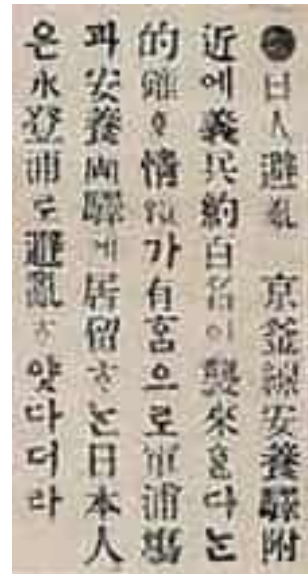 ●日人避亂 京釜線安養驛附
近에義兵約百名이襲來ᄒᆞᆫ다ᄂᆞᆫ
的確ᄒᆞᆫ情報가有홈으로軍浦場
과安養兩驛에居留ᄒᆞᄂᆞᆫ日本人
은永登浦로避亂ᄒᆞ얏다더라